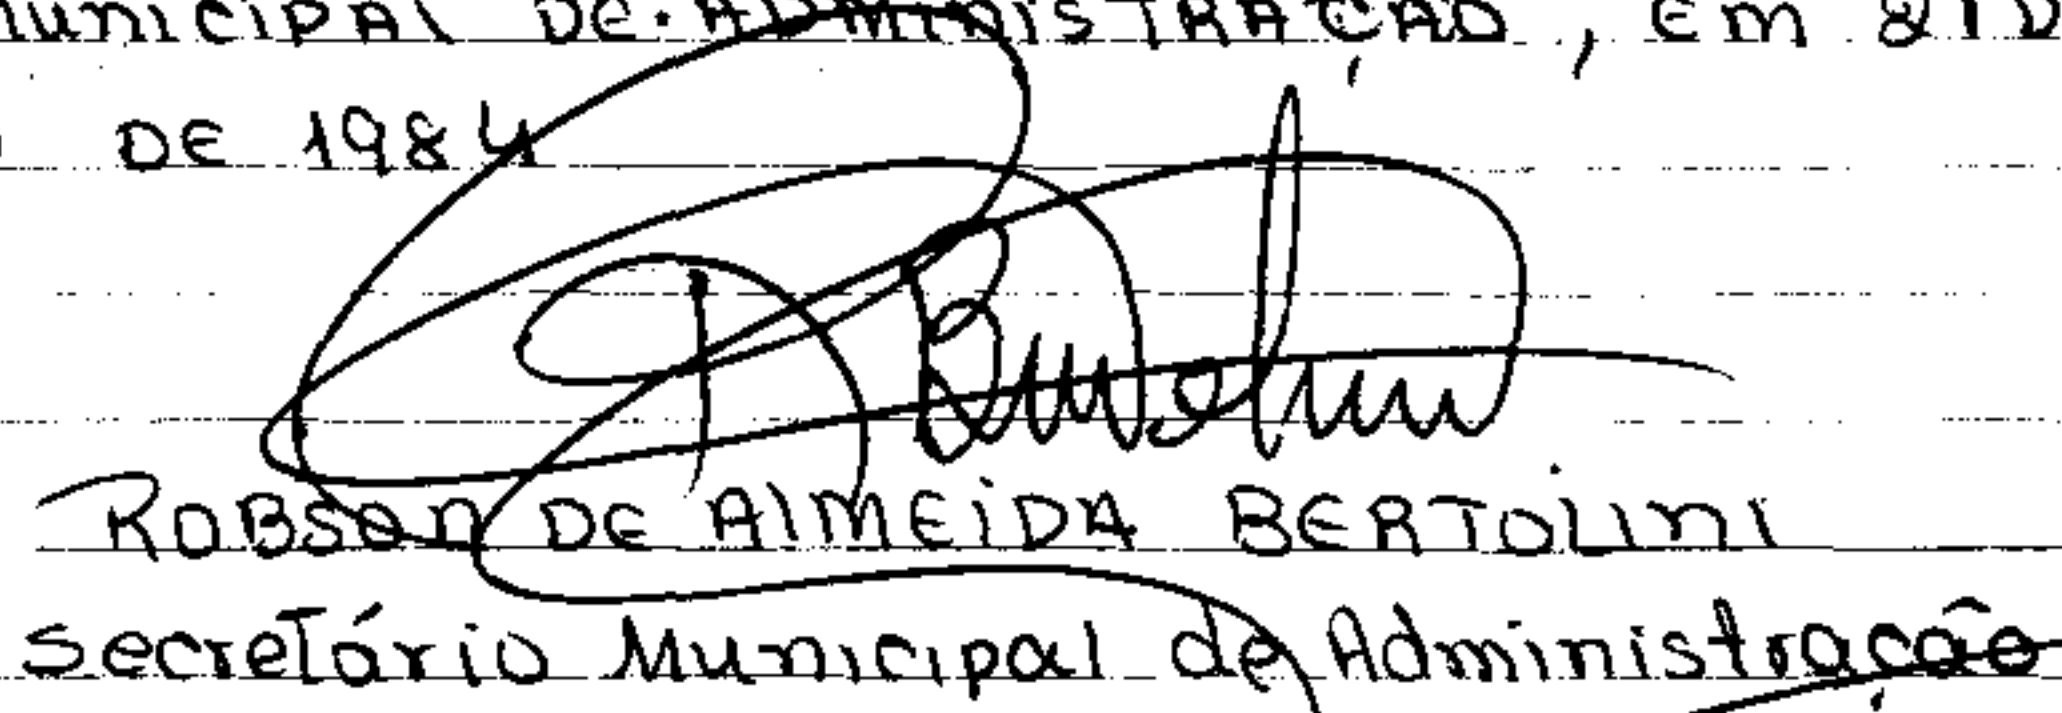 MUNICIPAL DE ADMINISTRAÇÃO, EM
DE 1984
ROBSON DE ALMEIDA BERTOLINI
Secretário Municipal de Administração